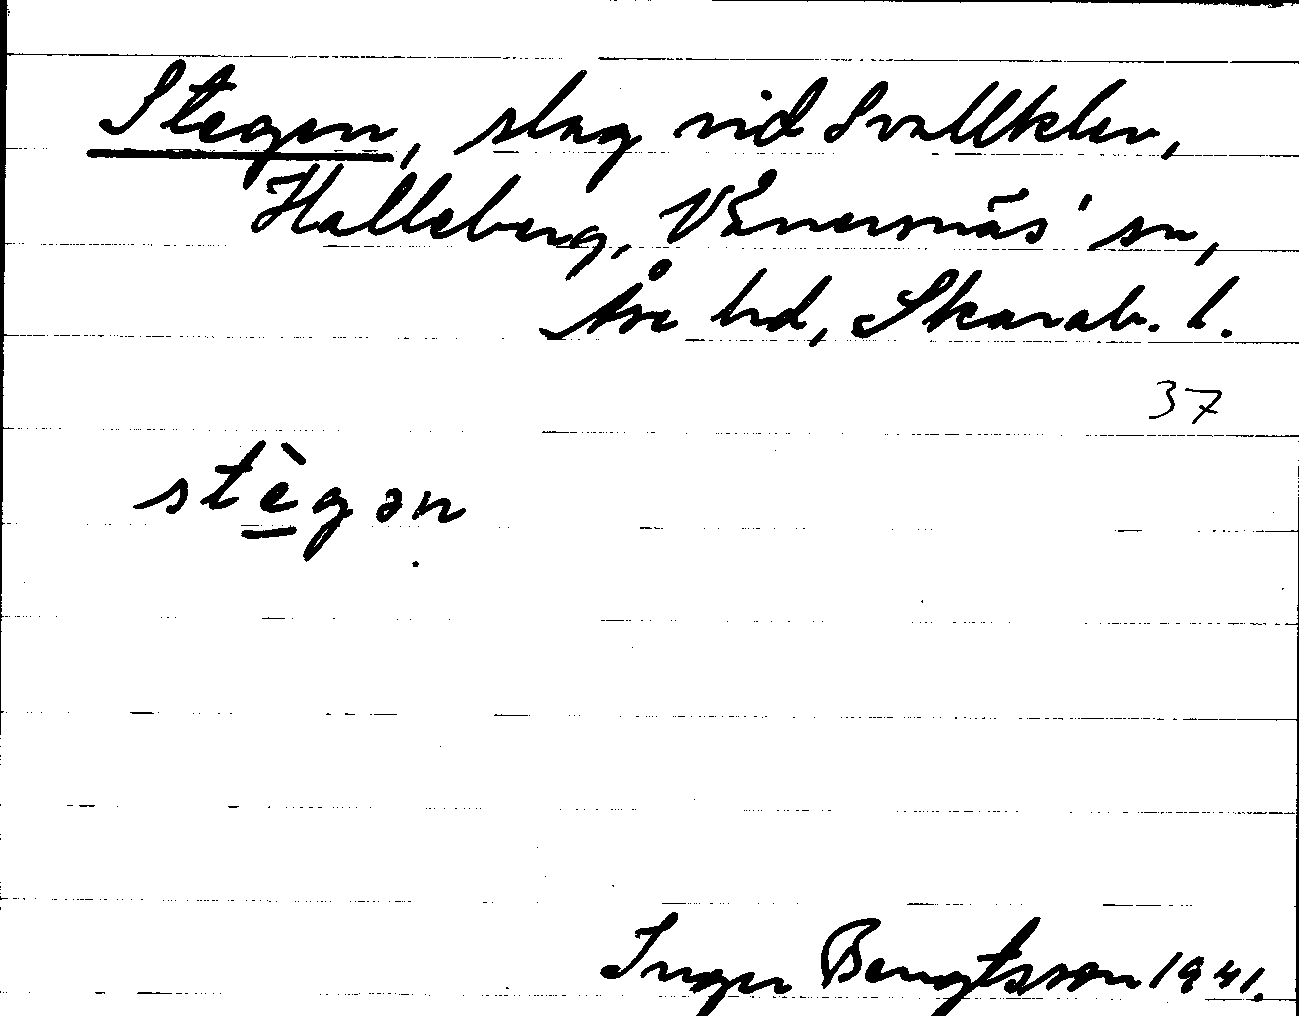 Stegen, slag vid Svallklev,
Halleberg, Vänersnäs' sn,
Åse hd, Skarab. l.
37
stègən
Inger Bengtsson 1941.